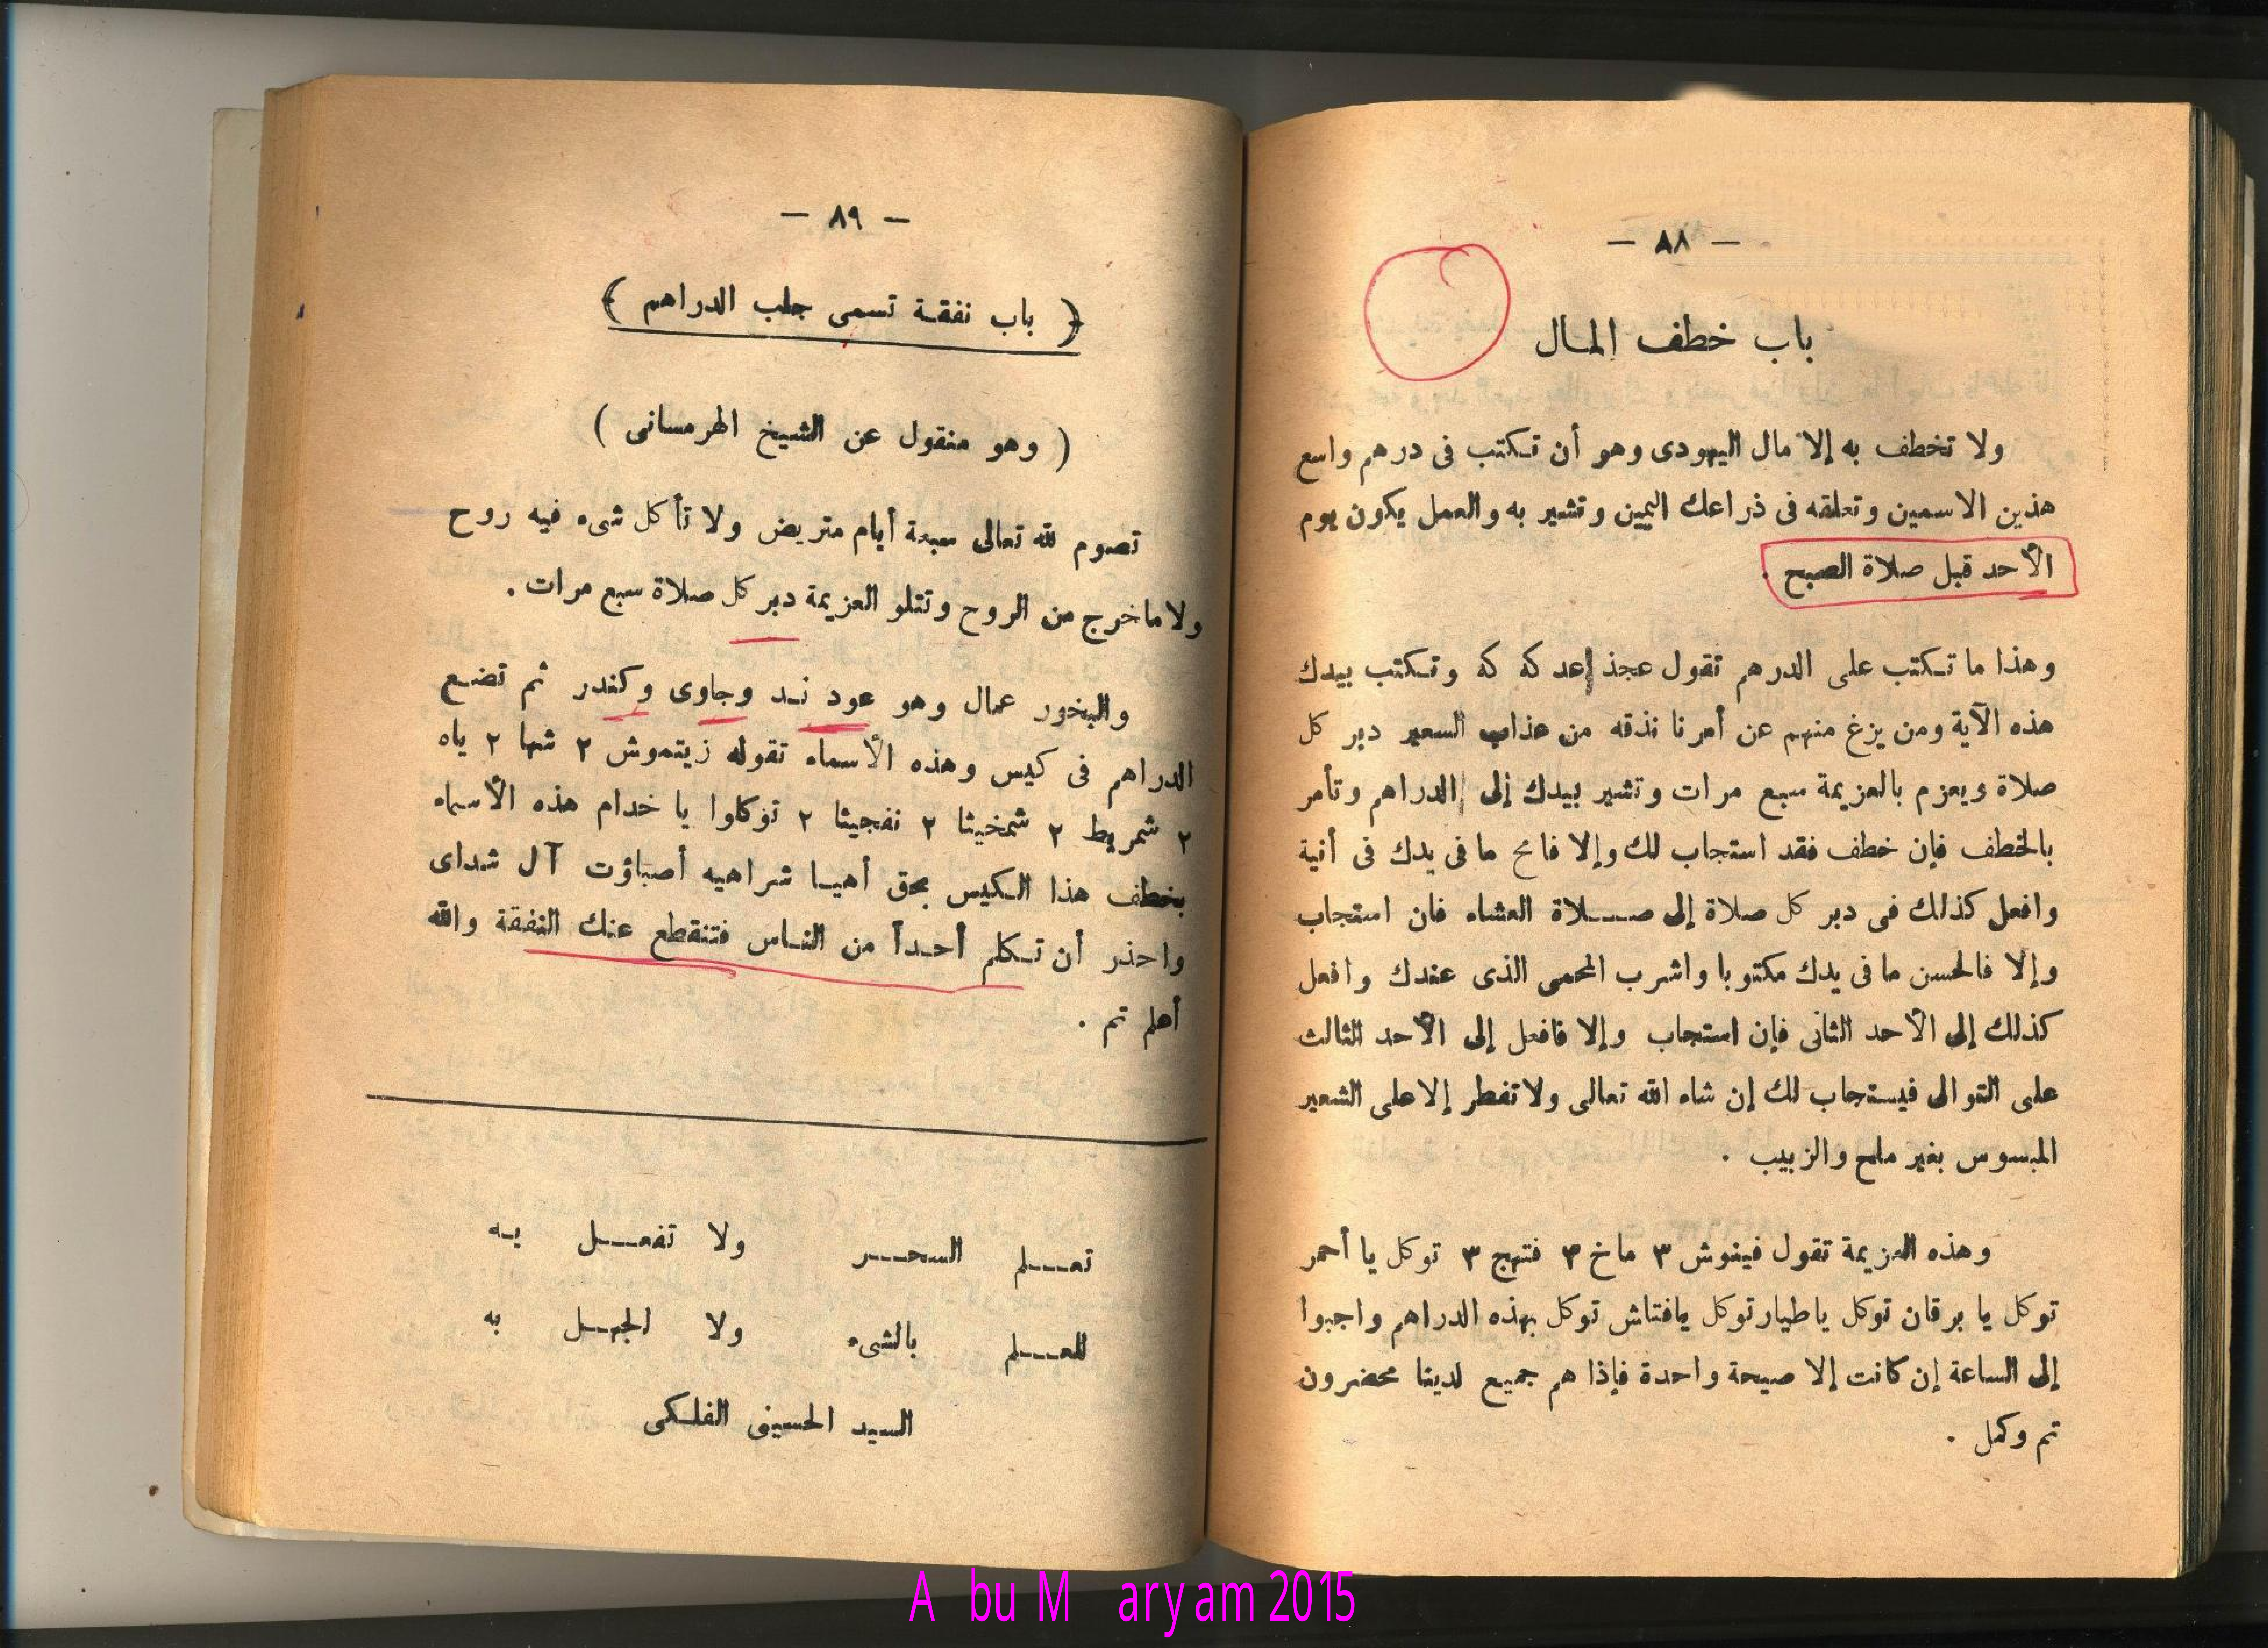 — ٨٨ —
باب خطف المال
ولا تخطف به إلا مال اليهودى وهو أن تكتب فى درهم واسع
هذين الاسمين وتعلقه فى ذراعك اليمين وتشير به والعمل يكون يوم
الأحد قبل صلاة الصبح .
وهذا ما تكتب على الدرهم تقول عجذ إعد كه كه وتكتب بيدك
هذه الآية ومن يزغ منهم عن أمرنا نذقه من عذاب السعير دبر كل
صلاة ويعزم بالعزيمة سبع مرات وتشير بيدك إلى الدراهم وتأمر
بالخطف فإن خطف فقد استجاب لك وإلا فامح ما فى يدك فى أنية
وافعل كذلك فى دبر كل صلاة إلى صلاة العشاء فان استجاب
وإلا فالحسن ما فى يدك مكتوبا واشرب المحمى الذى عندك وافعل
كذلك إلى الأحد الثانى فإن استجاب وإلا فافعل إلى الأحد الثالث
على التوالى فيستجاب لك إن شاء الله تعالى ولا تفطر إلا على الشعير
المبسوس بغير ملح والزبيب .
وهذه العزيمة تقول فينوش ٣ ماخ ٣ فتهج ٣ توكل يا أحمر
توكل يا برقان توكل يا طيار توكل يافتاش توكل بهذه الدراهم واجبوا
إلى الساعة إن كانت إلا صيحة واحدة فإذا هم جميع لدينا محضرون
تم وكمل .
— ٨٩ —
﴿ باب نفقة تسمى جلب الدراهم ﴾
( وهو منقول عن الشيخ الهرمسانى )
تصوم لله تعالى سبعة أيام متريض ولا تأكل شىء فيه روح
ولا ما خرج من الروح وتتلو العزيمة دبر كل صلاة سبع مرات .
والبخور عمال وهو عود ند وجاوى وكندر ثم تضع
الدراهم فى كيس وهذه الأسماء تقوله زيتموش ٢ شها ٢ ياه
٢ شمريط ٢ شمخيثا ٢ نفجيثا ٢ توكاوا يا خدام هذه الأسماء
بخطف هذا الكيس بحق أهيا شراهيه أصباؤت آل شداى
واحذر أن تكلم أحداً من الناس فتنقطع عنك النفقة والله
أعلم تم .
تعلم السحر ولا تفعل به
العلم بالشىء ولا الجهل به
السيد الحسينى الفلكى
Abu Maryam 2015